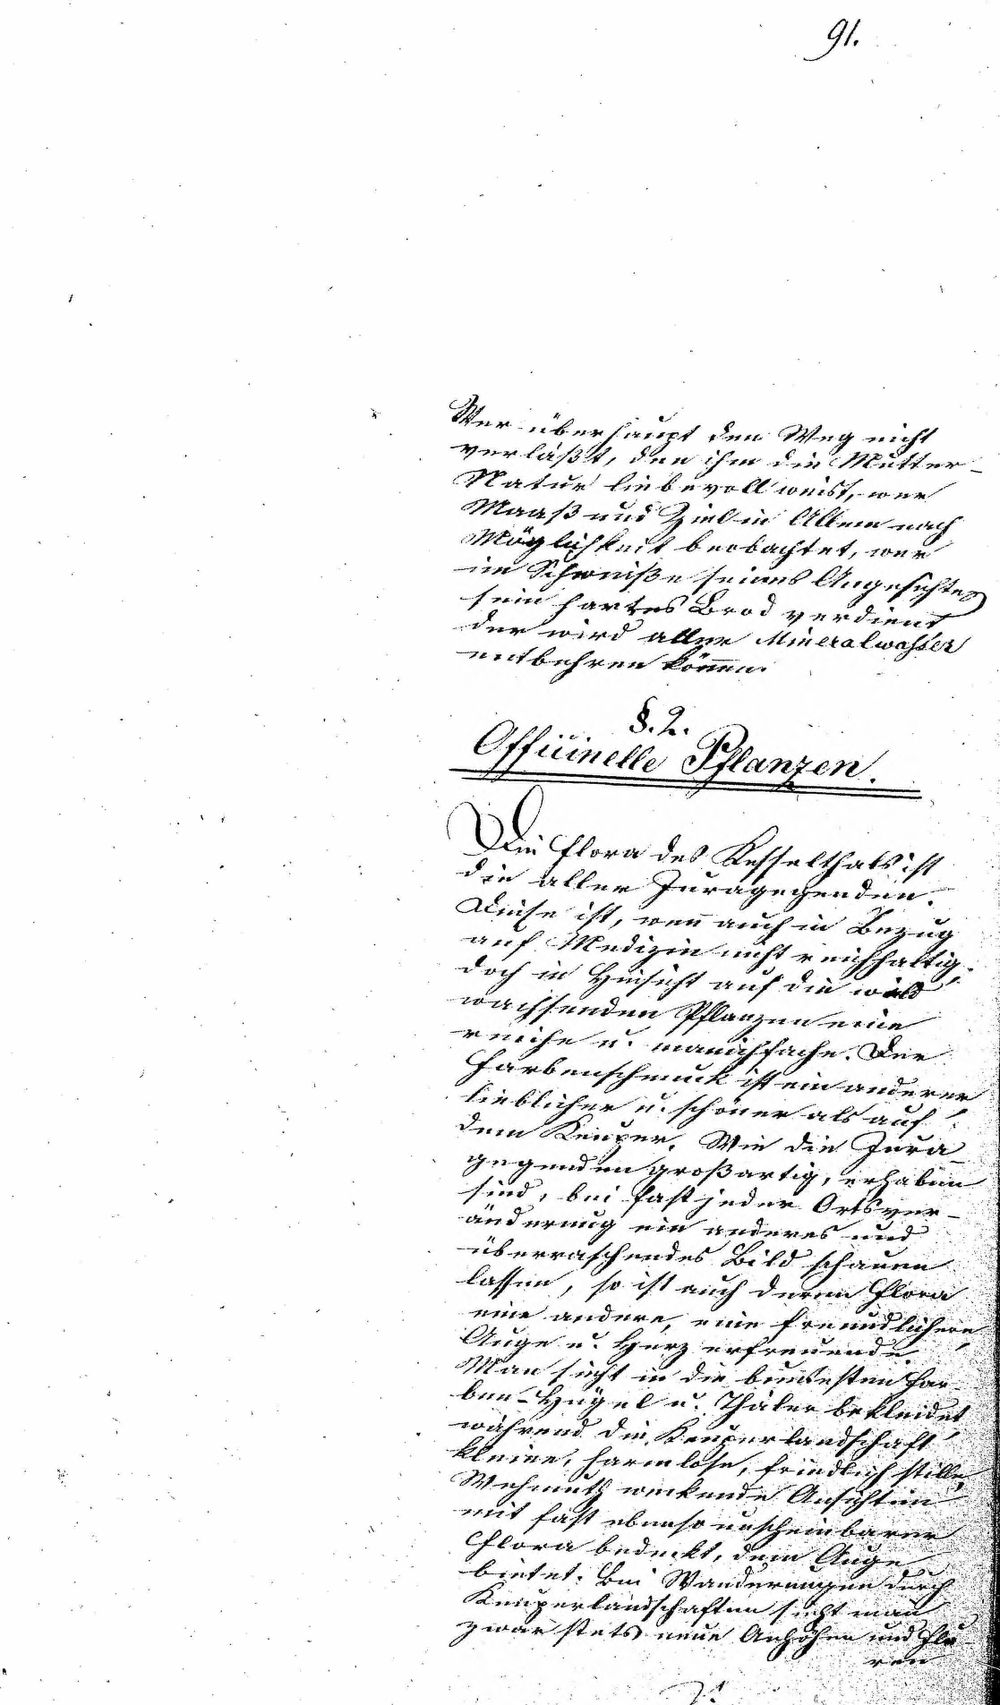 91.
Wer überhaupt den Weg nicht
verläßt, den ihm die Mutter-
Natur liebevoll weist, wer
Maaß und Ziel in Allem nach
Möglichkeit beobachtet, wer
im Schweiße seines Angesichtes
sein hartes Brod verdient
der wird aller Mineralwasser
entbehren können.
§. 2.
Officinelle Pflanzen.
Die Flora des Kesselthals ist
die aller Juragegenden.
Diese ist, wenn auch in Bezug
auf Medizin nicht reichhaltig,
doch in Hinsicht auf die wild
wachsenden Pflanzen eine
reiche u. manichfache. Der
Farbenschmuck ist ein anderer
lieblicher u. schöner als auf
dem Keuper. Wie die Jura-
gegenden großartig, erhaben
sind, bei fast jeder Ortsver-
änderung ein anderes und
überraschendes Bild schauen
lassen, so ist auch deren Flora
eine andere, eine freundlichere,
Auge u. Herz erfreuende.
Man sieht in die buntesten Far-
ben Hügel u. Thäler bekleidet,
während die Keuperlandschaft
kleine, harmlose, friedlich stille,
Wehmuth weckende Ansichten
mit fast ebenso unscheinbarer
Flora bedeckt, dem Auge
bietet. Bei Wanderungen durch
Keuperlandschaften sieht man
zwar stets neue Anhöhen und Flu-
ren